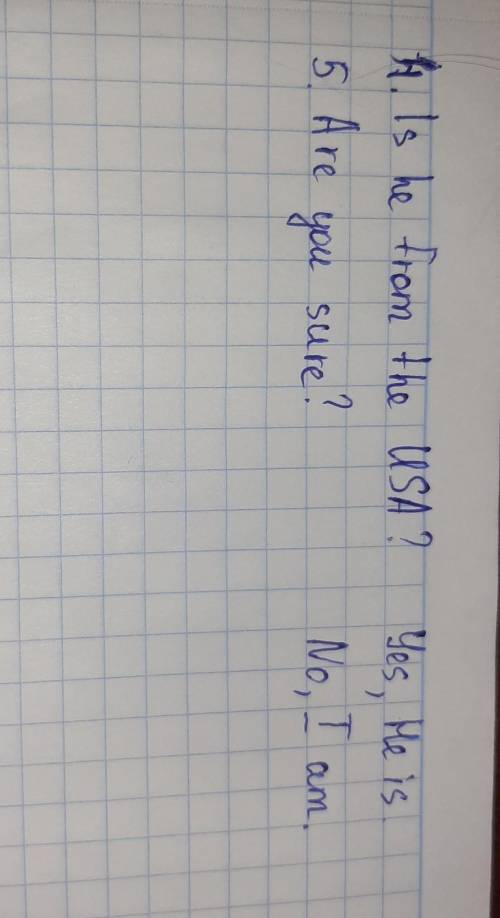 4. Is he from the USA? Yes, He is.
5. Are you sure? No, I am.